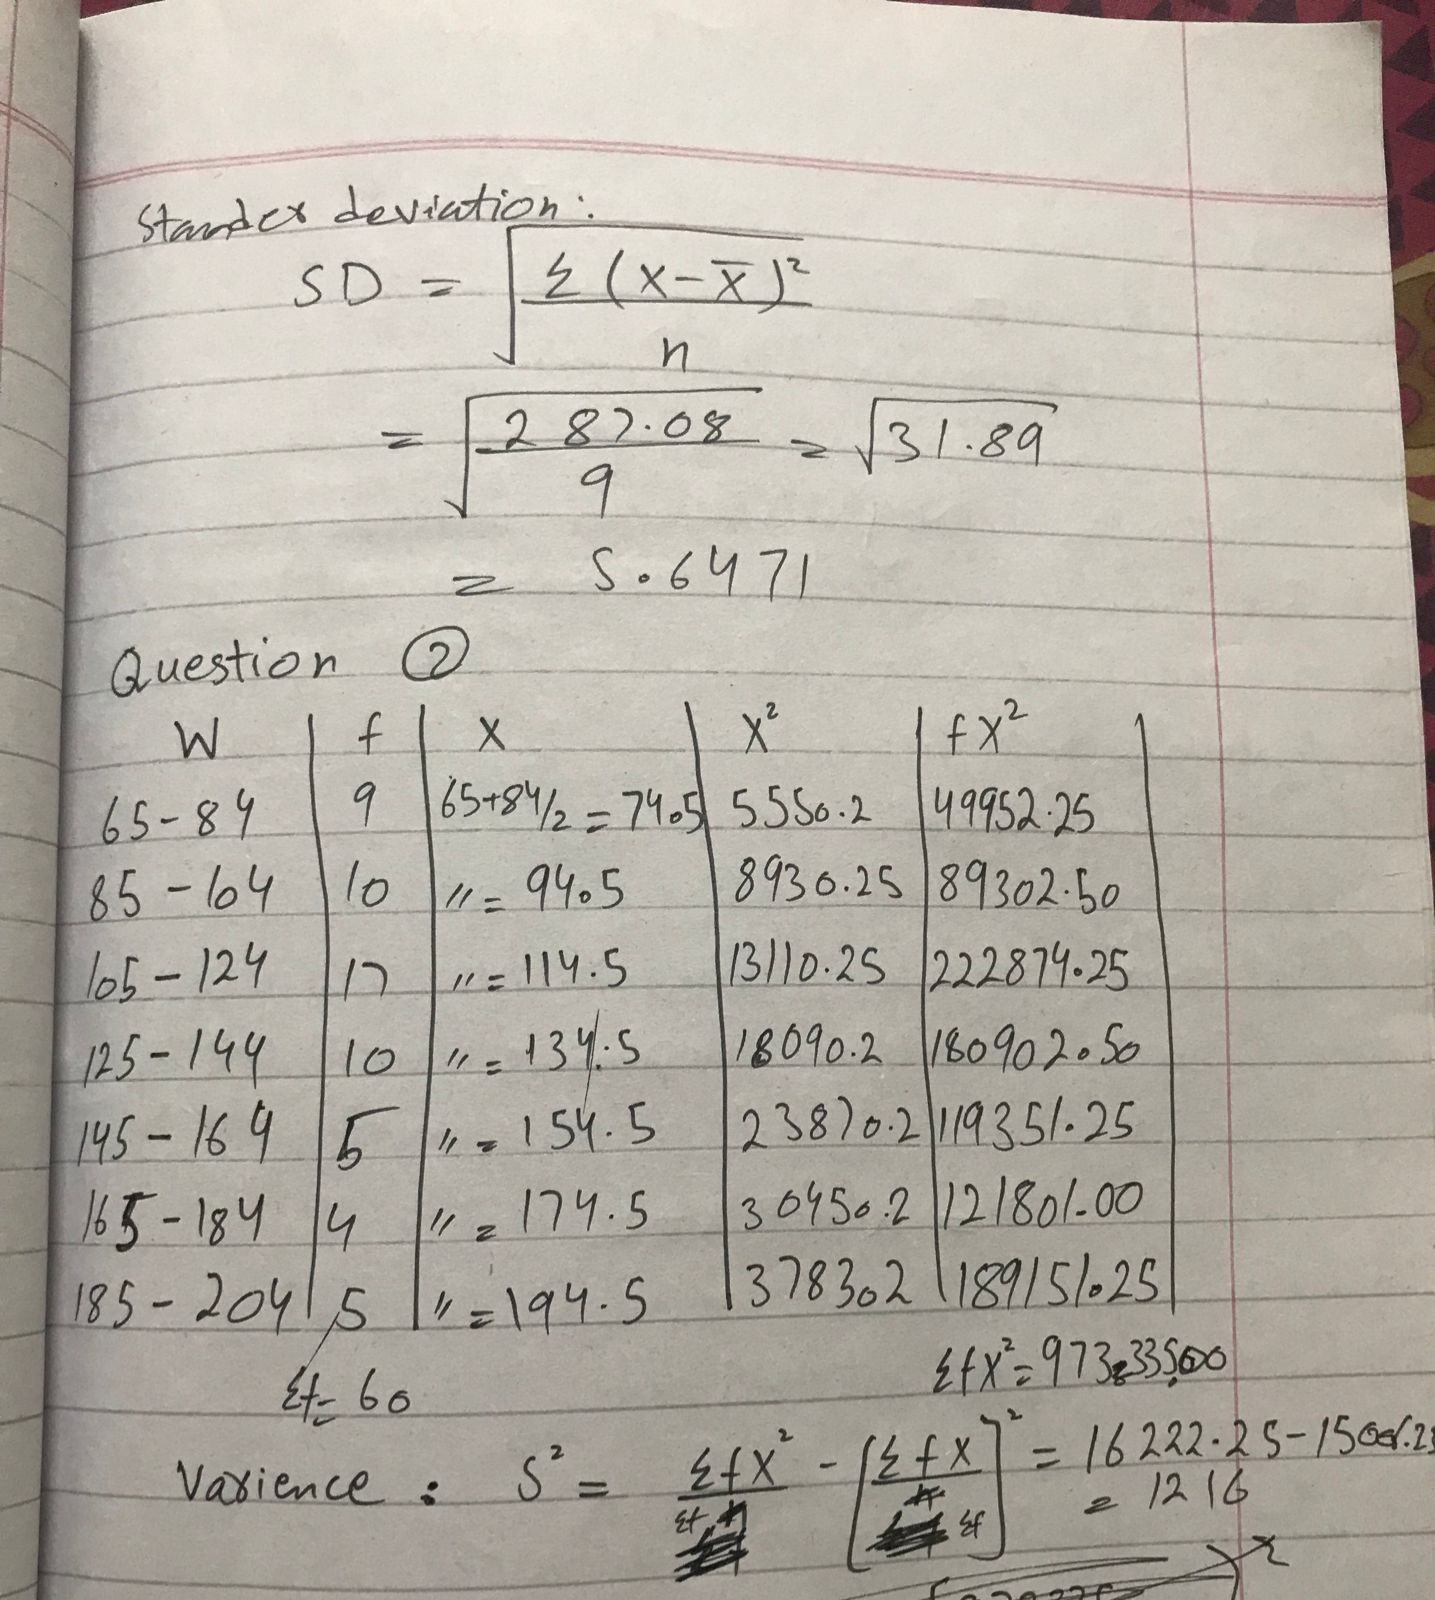 Stander deviation:
SD = √ Σ (X-X̄)² / n
= √ 287.08 / 9 = √31.89
= 5.6471
Question ②
W | f | X | X² | fX²
65-84 | 9 | 65+84/2 = 74.5 | 5550.2 | 49952.25
85-104 | 10 | " = 94.5 | 8930.25 | 89302.50
105-124 | 17 | " = 114.5 | 13110.25 | 222874.25
125-144 | 10 | " = 134.5 | 18090.2 | 180902.50
145-164 | 5 | " = 154.5 | 23870.2 | 119351.25
165-184 | 4 | " = 174.5 | 30450.2 | 121801.00
185-204 | 5 | " = 194.5 | 37830.2 | 189151.25
Σf= 60 ΣfX²= 973335.00
Varience : S² = ΣfX² / Σf - [ΣfX / Σf]² = 16222.25-15006.25
= 1216